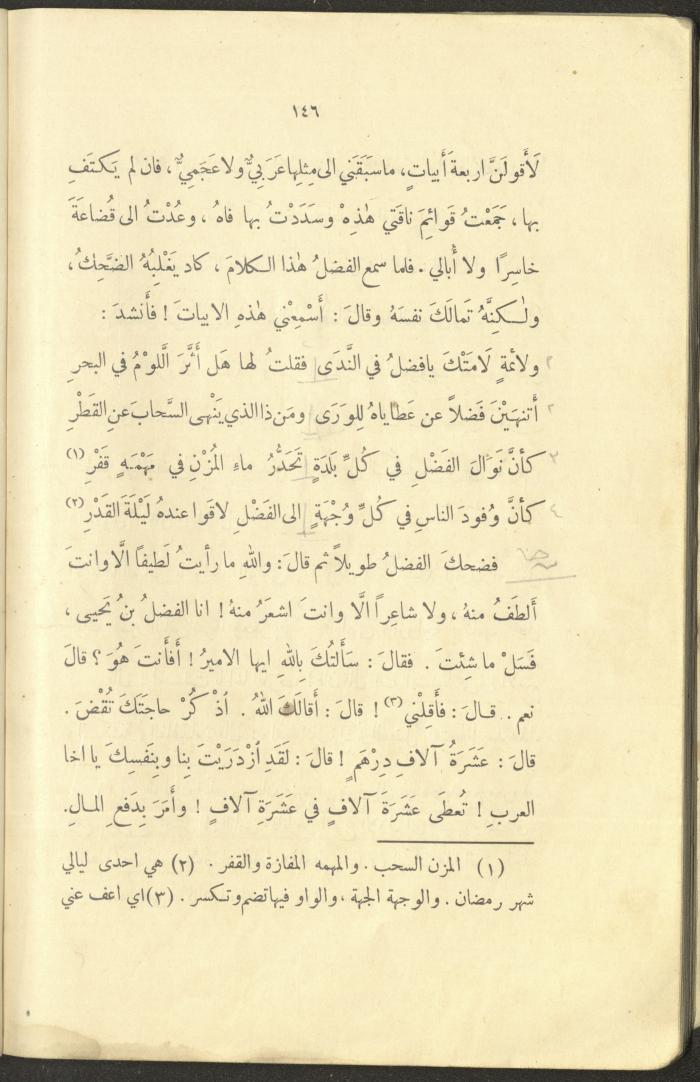 ١٤٦
لَأَقولَنَّ اربعةَ أَبياتٍ، ماسَبَقَني الى مِثلِها عَرَبيٌّ ولا عَجَميٌّ، فان لم يَكتَفِ
بها، جَمَعْتُ قوائِمَ ناقَتي هٰذِهْ وسَدَدْتُ بها فاهُ، وعُدْتُ الى قُضاعَةَ
خاسِرًا ولا أُبالي. فلما سمع الفضلُ هٰذا الكلامَ، كاد يَغْلِبُهُ الضَّحِكُ،
ولٰكِنَّهُ تَمالَكَ نفسَهُ وقالَ: أَسْمِعْني هٰذهِ الابياتَ! فأَنشدَ:
ولائمةٍ لَامَتْكَ يافضلُ في النَّدَى فقلتُ لها هَل أَثَّرَ اللَّوْمُ في البحرِ
٢ أَتنهَيْنَ فَضلاً عن عَطاياهُ لِلوَرَى ومَن ذا الذي يَنْهى السَّحابَ عَنِ القَطْرِ
٣ كأنَّ نَوَالَ الفَضْلِ في كُلِّ بَلدَةٍ تَحَدُّرُ ماءِ المُزْنِ في مَهْمَهٍ قَفْرِ (١)
٤ كأنَّ وُفودَ الناسِ في كُلِّ وُجْهَةٍ الى الفَضْلِ لاقَوا عندهُ لَيْلَةَ القَدْرِ (٢)
فضحكَ الفضلُ طويلاً ثم قالَ: واللهِ ما رأيتُ لَطيفاً الَّا وانتَ
أَلطَفُ منهُ، ولا شاعِراً الَّا وانتَ اشعَرُ منهُ! انا الفضلُ بنُ يَحيى،
فَسَلْ ما شِئتَ. فقالَ: سَأَلتُكَ بِاللهِ ايها الاميرُ! أَفأَنتَ هُوَ؟ قالَ
نعم.. قالَ: فأَقِلْني (٣)! قالَ: أَقالَكَ اللهُ. اذْكُرْ حاجتَكَ تُقْضَ.
قالَ: عَشَرَةُ آلافِ دِرْهَمٍ! قالَ: لَقَدِ ٱزْدَرَيْتَ بِنا وبِنَفسِكَ يا اخا
العربِ! تُعطَى عَشَرَةَ آلافٍ في عَشَرَةِ آلافٍ! وأَمَرَ بِدَفعِ المالِ.
(١) المزن السحب. والمهمه المفازة والقفر. (٢) هي احدى ليالي
شهر رمضان. والوجهة الجهة، والواو فيها تضم وتكسر. (٣) اي اعف عني